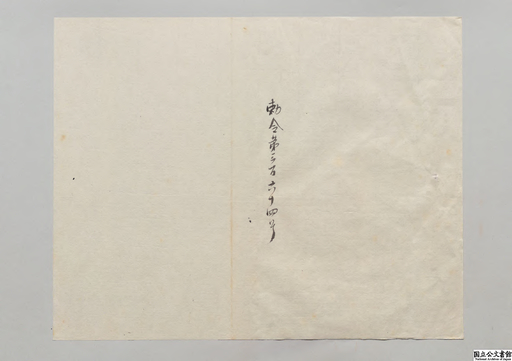 勅令第三百六十四号
国立公文書館
National Archives of Japan